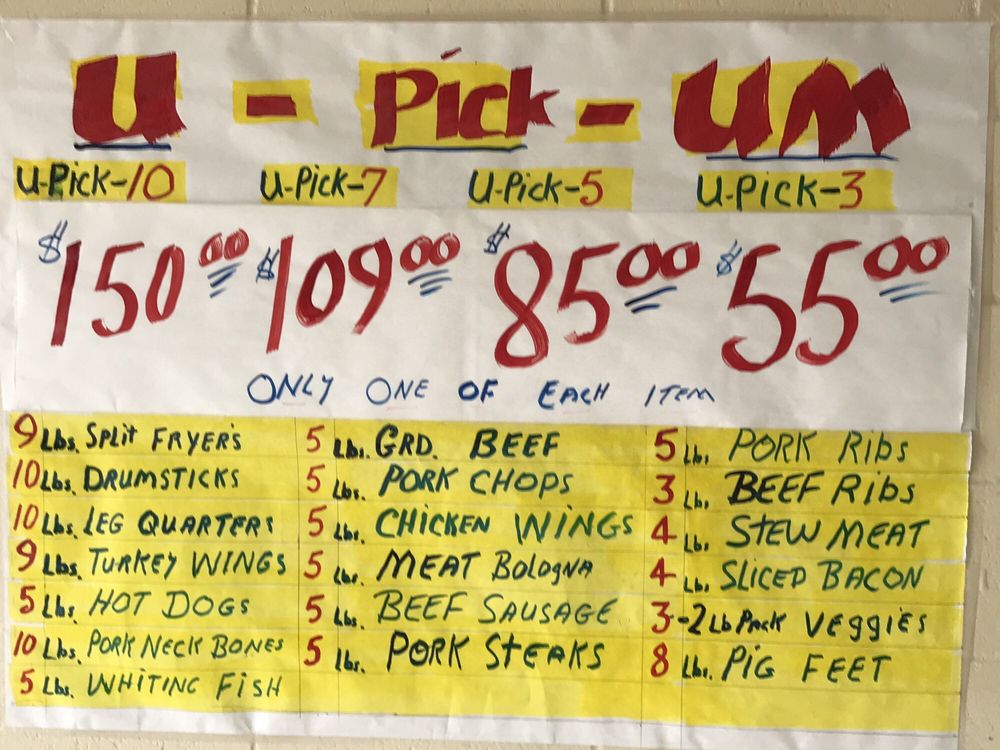 U - Pick - UM
U-Pick-10 U-Pick-7 U-Pick-5 U-Pick-3
$150.00 $109.00 $85.00 $55.00
ONLY ONE OF EACH ITEM
9 Lbs. Split FRYER'S
10 Lbs. DRUMSTICKS
10 Lbs. LEG QUARTERS
9 Lbs. TURKEY WINGS
5 Lbs. HOT DOGS
10 Lbs. PORK NECK BONES
5 Lbs. WHITING FISH
5 Lbs. GRD. BEEF
5 Lbs. PORK CHOPS
5 Lbs. CHICKEN WINGS
5 Lbs. MEAT BologNA
5 Lbs. BEEF SAUSAGE
5 Lbs. PORK STEAKS
5 Lb. PORK Ribs
3 Lb. BEEF Ribs
4 Lb. STEW MEAT
4 Lb. SLICED BACON
3-2 Lb Pack VEggiES
8 Lb. PiG FEET